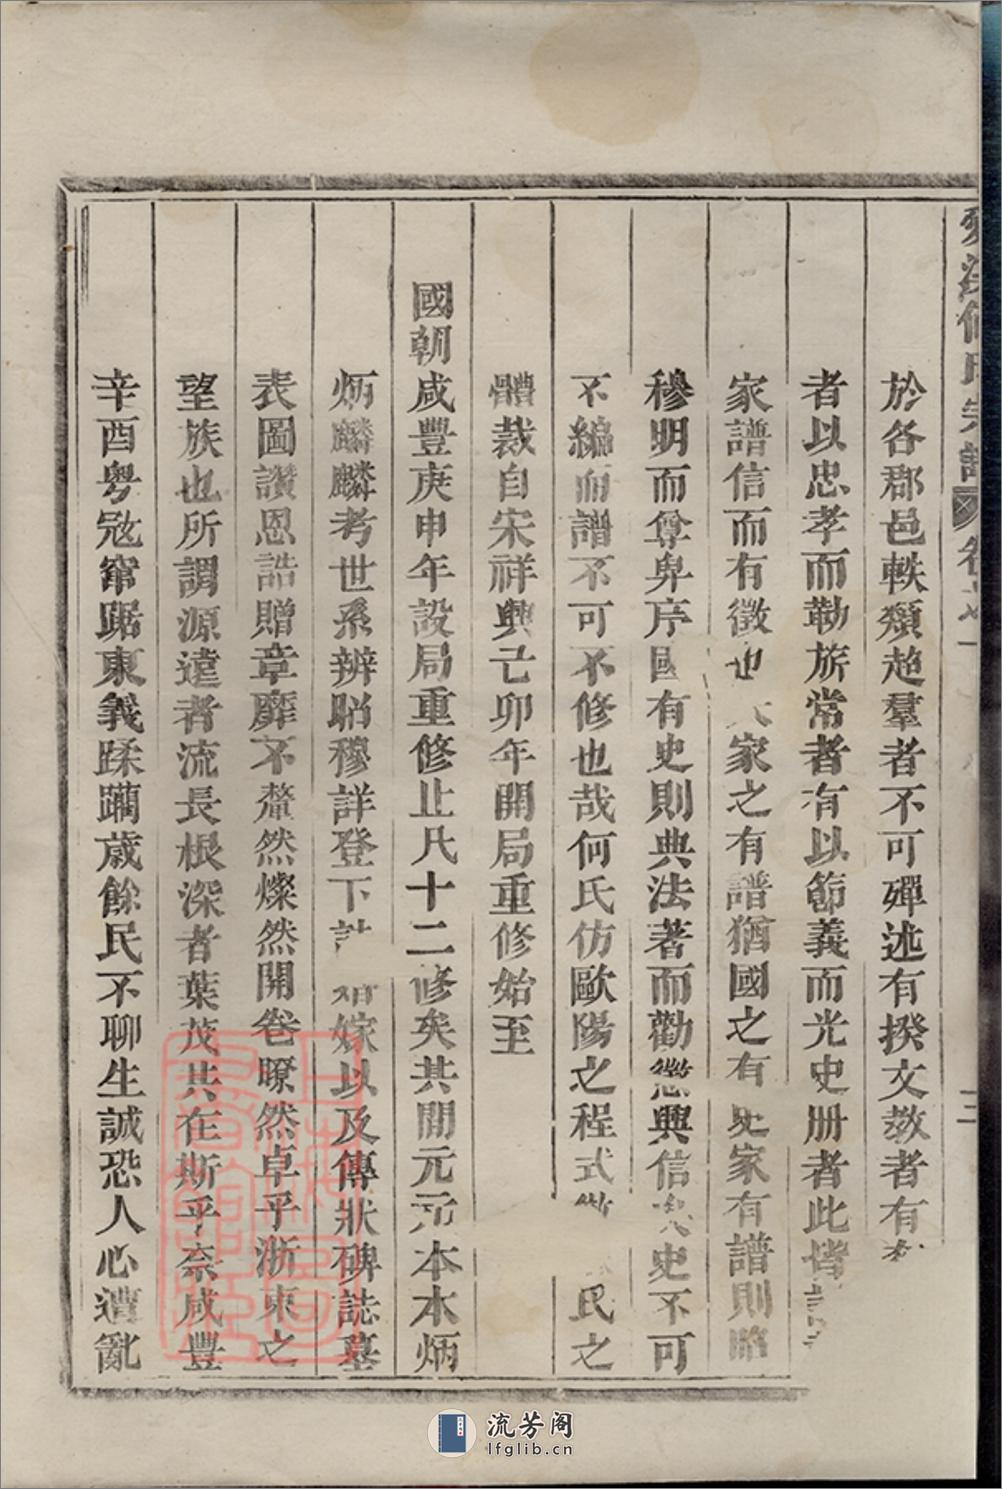 何氏宗譜 卷之一
三
於各郡邑軼類超羣者不可殫述有揆文教者有
者以忠孝而勒旂常者有以節義而光史册者此皆
家譜信而有徵也 家之有譜猶國之有史家有譜則昭
穆明而尊卑序國有史則典法著而勸懲興信 史不可
不編而譜不可不修也哉何氏仿歐陽之程式 氏之
體裁自宋祥興己卯年開局重修始至
國朝咸豐庚申年設局重修止凡十二修矣其間元元本本炳
炳麟麟考世系辨昭穆詳登下 嫁以及傳狀碑誌墓
表圖讚恩誥贈章靡不犛然燦然開卷瞭然卓乎浙東之
望族也所謂源遠者流長根深者葉茂其在斯乎奈咸豐
辛酉粤宼竄踞東義蹂躪歲餘民不聊生誠恐人心遭亂
流芳阁
lfglib.cn